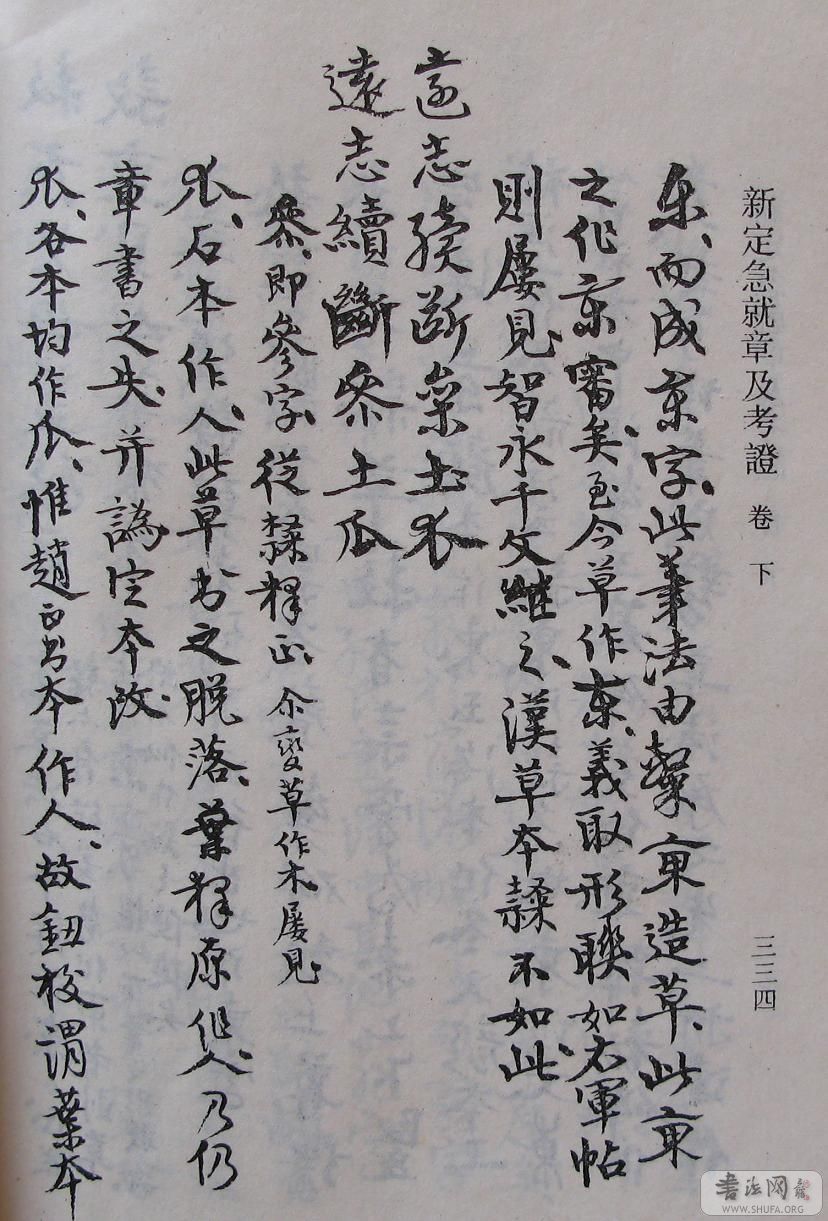 新定急就章及考證 卷下 三三四
而成字此筆法由造草此東
之作審矣至今草作東義取形聯如右軍帖
則屢見智永千文繼之漢草本隸不如此
遠志續斷參土瓜
遠志續斷參土瓜
參即參字從隸釋正 余變草作木屢見
瓜石本作人此草书之脫落葉釋原作人乃仍
章書之失并譌定本改
瓜各本均作瓜惟趙書本作人故鈕校謂葉本
書法网
WWW.SHUFA.ORG